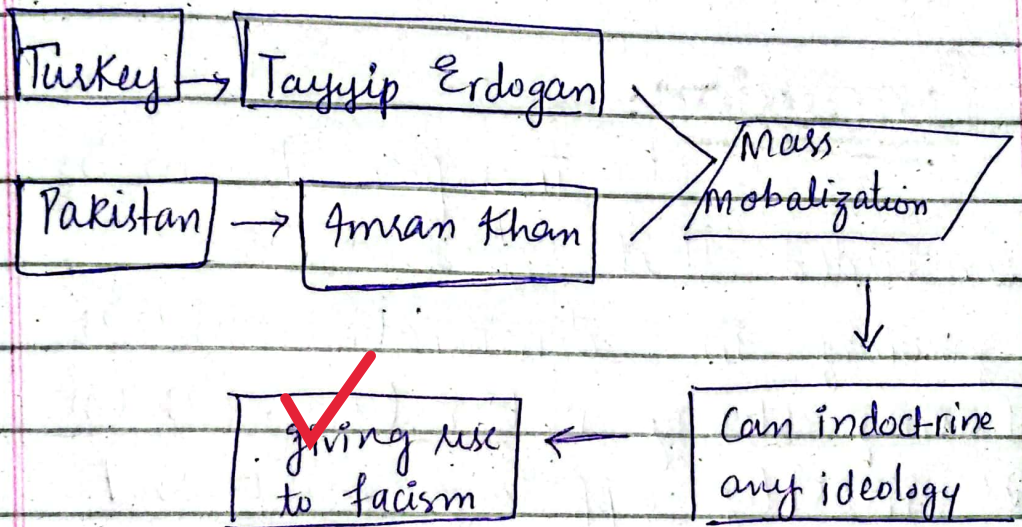 Turkey → Tayyip Erdogan
Pakistan → Imran Khan
Mass
mobalization
Can indoctrine
any ideology
giving rise
to facism